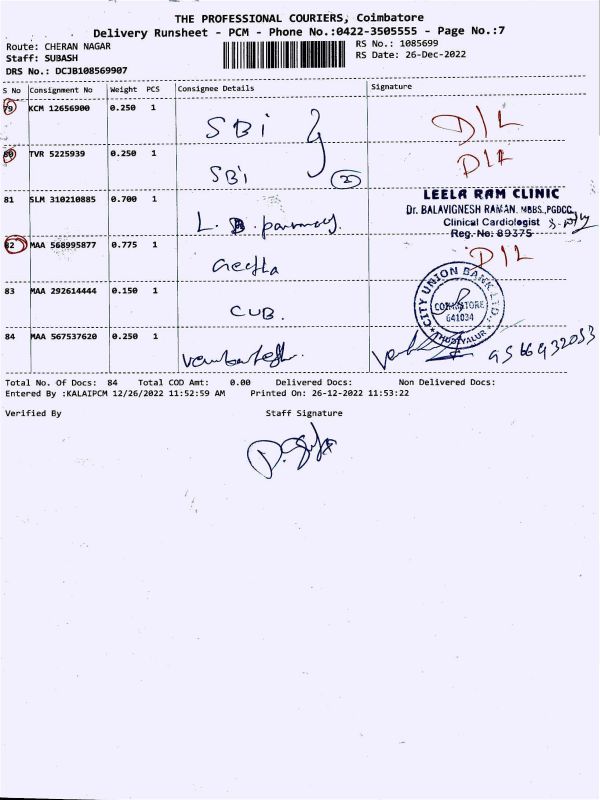 THE PROFESSIONAL COURIERS, Coimbatore
Delivery Runsheet - PCM - Phone No.:0422-3505555 - Page No.:7
Route: CHERAN NAGAR
RS No.: 1085699
Staff: SUBASH
RS Date: 26-Dec-2022
DRS No.: DCJB108569907
S No Consignment No Weight PCS Consignee Details Signature
79 KCM 12656900 0.250 1 SBi D/L
80 TVR 5225939 0.250 1 SBi 2 D/L
81 SLM 310210885 0.700 1 L.
LEELA RAM CLINIC
Dr. BALAVIGNESH RAMAN. MBBS.,PGDCC.,
Clinical Cardiologist
Reg.No: 89375
82 MAA 568995877 0.775 1 Geetha D/L
83 MAA 292614444 0.150 1 CUB.
CITY UNION BANK LTD.
COIMBATORE
641034
84 MAA 567537620 0.250 1
Total No. Of Docs: 84 Total COD Amt: 0.00 Delivered Docs: Non Delivered Docs:
Entered By :KALAIPCM 12/26/2022 11:52:59 AM Printed On: 26-12-2022 11:53:22
Verified By Staff Signature